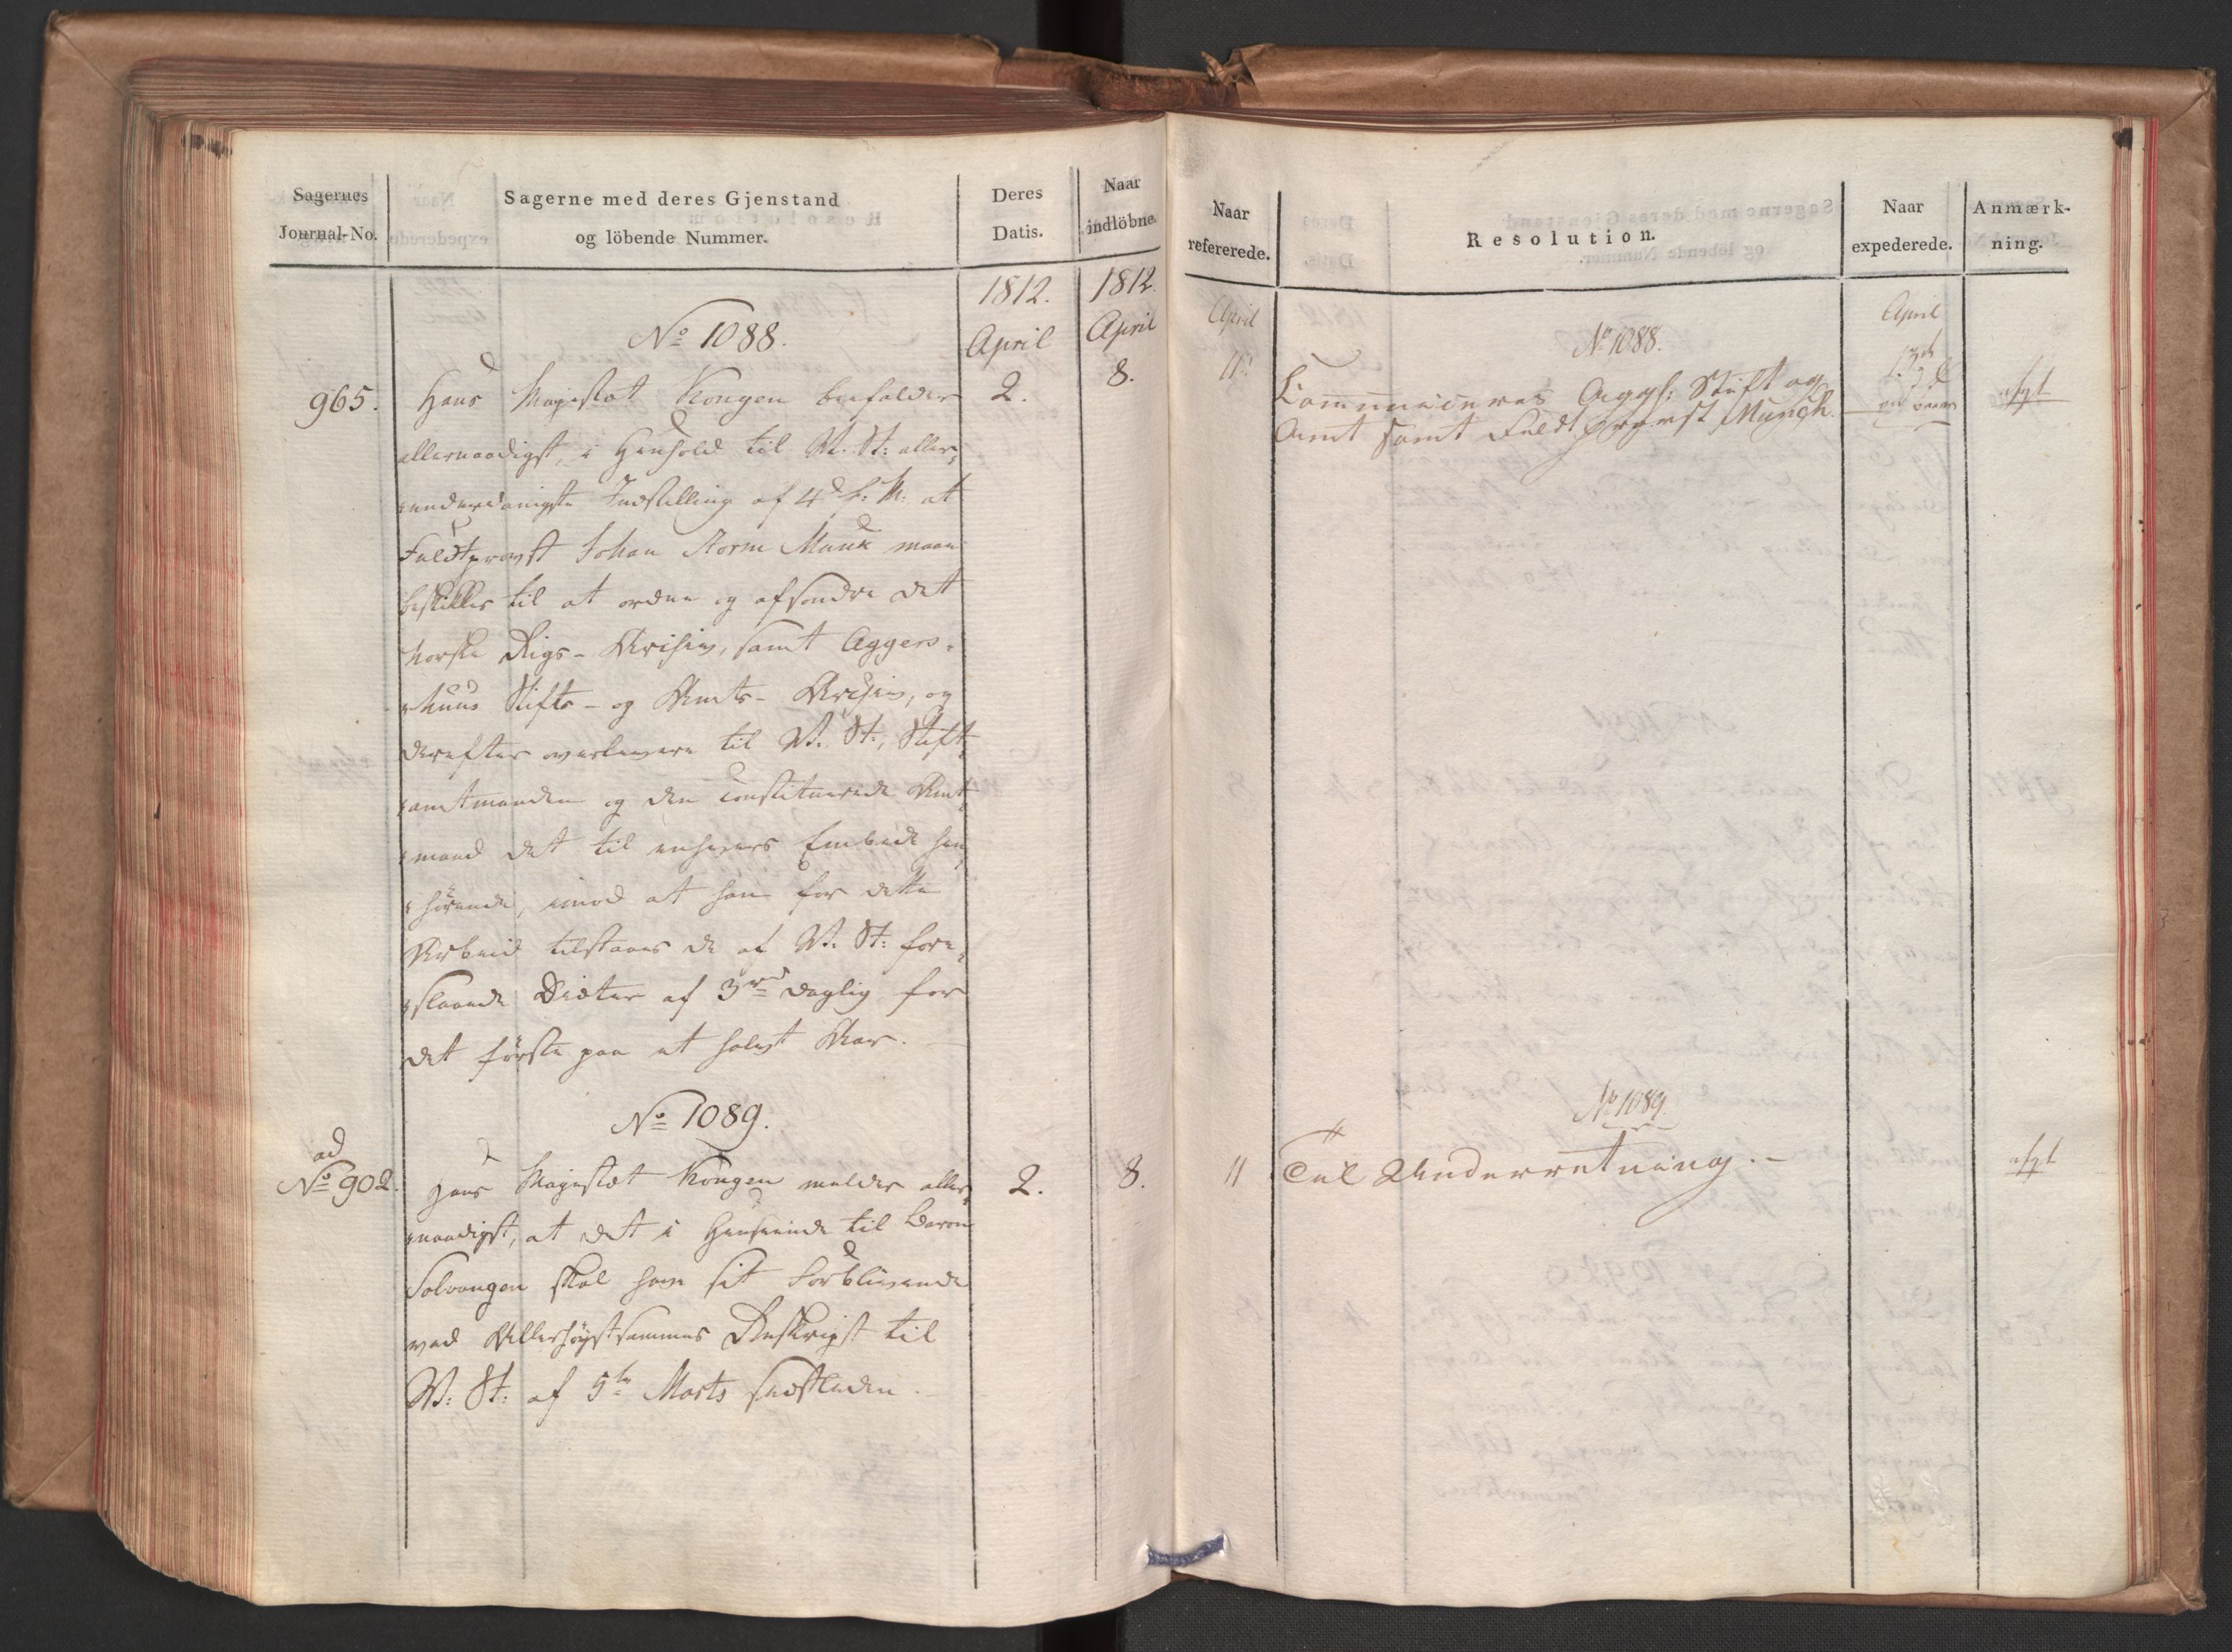 Sagernes
Journal-No.
Sagerne med deres Gjenstand
og löbende Nummer.
Deres
Datis.
Naar
indlöbne.
1812.
April
1812.
April
No 1088.
965.
Hans Majestæt Kongen befalder
2.
8.
allernaadigst, i Henhold til V. St: aller-
underdanigste Indstilling af 4d f: M: at
Feldtprovst Johan Storm Munk maae
beskikkes til at ordne og afsondre det
norske Rigs-Archiv, samt Aggers-
huus Stifts- og Amts-Archiv, og
derefter overlevere til V. St:, Stift-
amtmanden og den constituerede Amt-
mand det til enhvers Embede hen-
hörende, imod at han for dette
Arbeid tilstaaes de af V. St: fore-
slaaede Diæter af 3rd daglig for
det förste paa et halvt Aar.
No 1089.
ad
No 902.
Hans Majestæt Kongen melder aller-
2.
8.
naadigst, at det i Henseende til Baron
Adeler skal have sit Forblivende
ved Allerhöystsammes Reskript til
V: St: af 5te Marts sidstleden.
Naar
refererede.
Resolution.
Naar
expederede.
Anmærk-
ning.
April
April
No 1088.
11.
Communiceres Aggh: Stift og
Amt samt Feldtprovst Munch.
13d
afgt
No 1089.
11
Til Underretning.
afgt